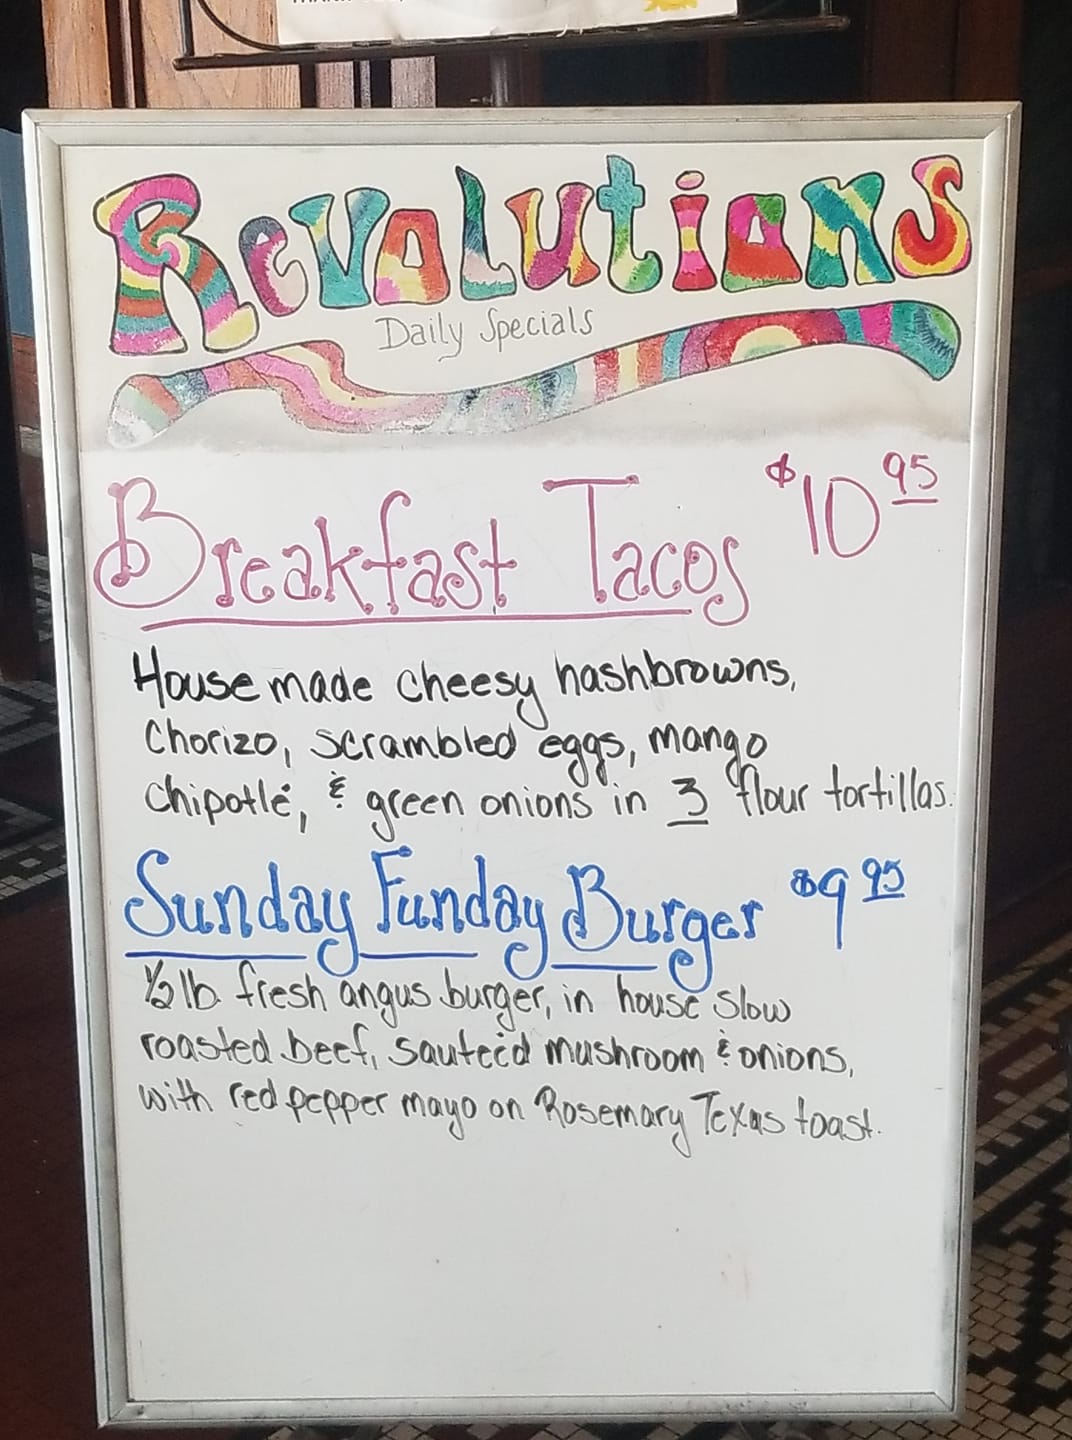 Revolutions
Daily Specials
Breakfast Tacos $10 95
House made cheesy hashbrowns,
Chorizo, scrambled eggs, mango
chipotlé, & green onions in 3 flour tortillas.
Sunday Funday Burger $9 95
1/2 lb. fresh angus burger, in house slow
roasted beef, sauteéd mushroom & onions,
with red pepper mayo on Rosemary Texas toast.